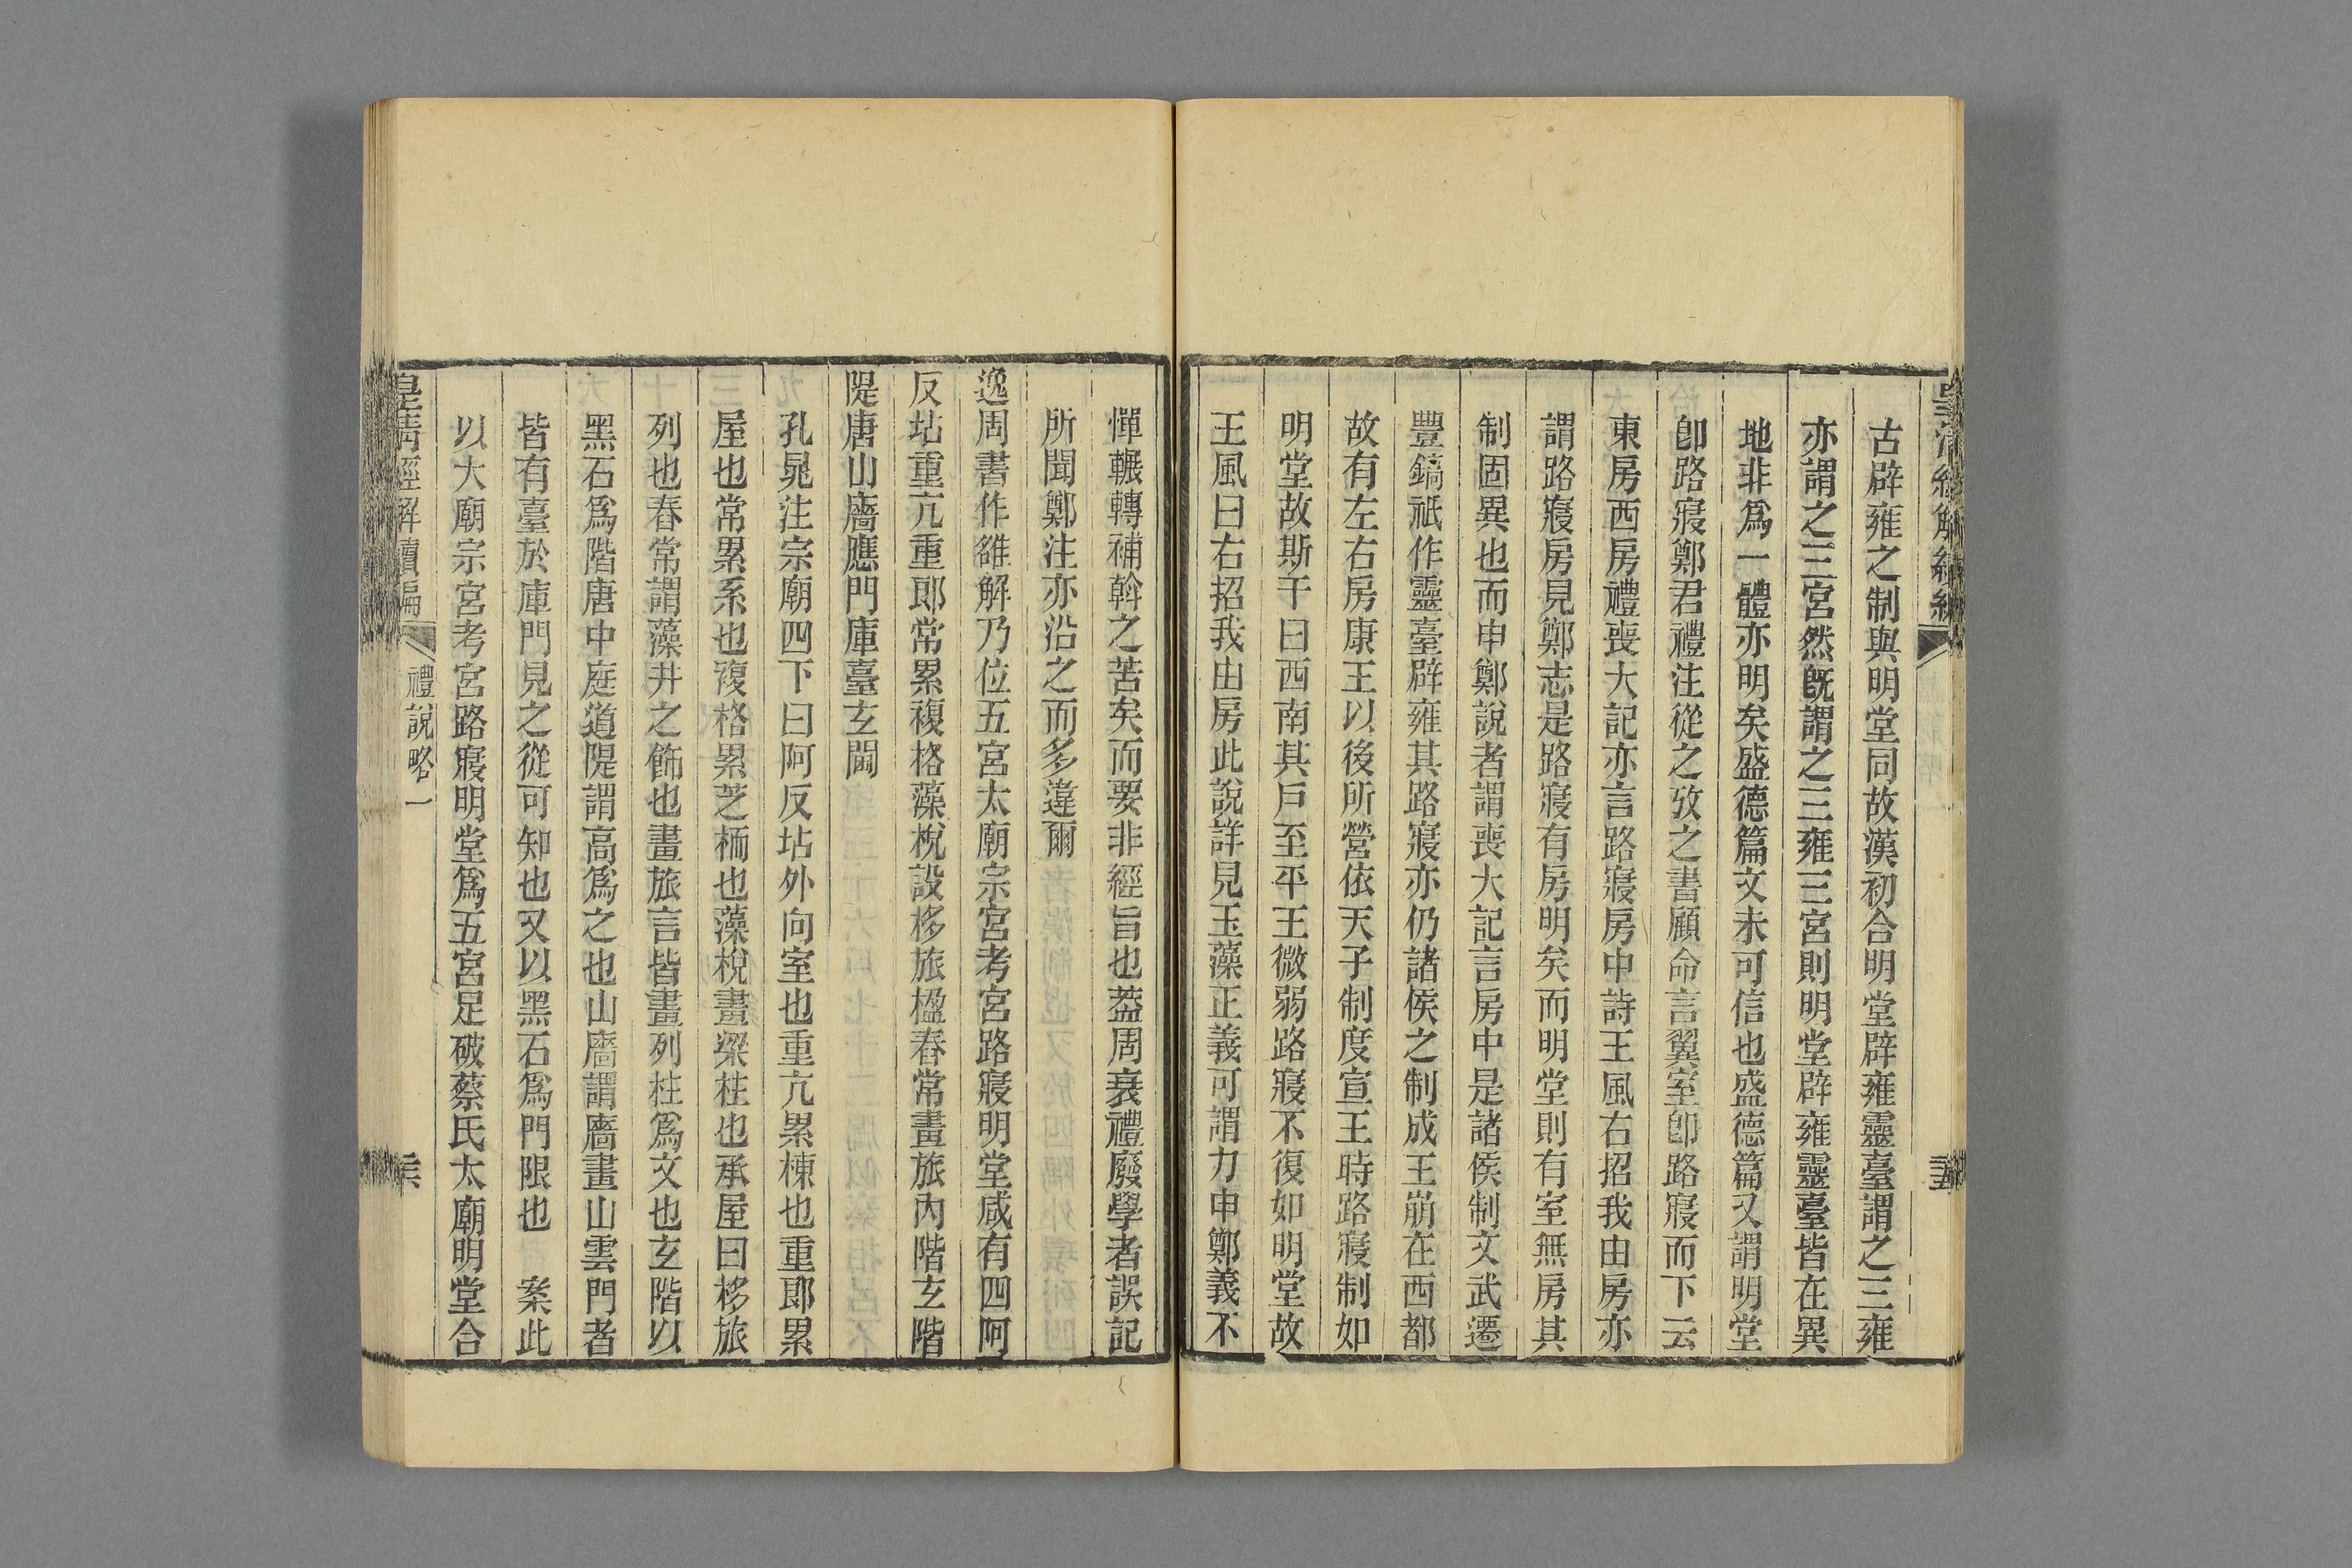 古辟雍之制與明堂同故漢初合明堂辟雍靈臺謂之三雍
亦謂之三宮然旣謂之三雍三宮則明堂辟雍靈臺皆在異
地非爲一體亦明矣盛德篇文未可信也盛德篇又謂明堂
卽路寢鄭君禮注從之攷之書顧命言翼室卽路寢而下云
東房西房禮喪大記亦言路寢房中詩王風右招我由房亦
謂路寢房見鄭志是路寢有房明矣而明堂則有室無房其
制固異也而申鄭說者謂喪大記言房中是諸侯制文武遷
豐鎬祇作靈臺辟雍其路寢亦仍諸侯之制成王崩在西都
故有左右房康王以後所營依天子制度宣王時路寢制如
明堂故斯干曰西南其戶至平王微弱路寢不復如明堂故
王風曰右招我由房此說詳見玉藻正義可謂力申鄭義不
憚輾轉補斡之苦矣而要非經旨也葢周衰禮廢學者誤記
所聞鄭注亦沿之而多違爾
逸周書作雒解乃位五宮太廟宗宮考宮路寢明堂咸有四阿
反坫重亢重郎常累複格藻梲設移旅楹舂常畫旅內階玄階
隄唐山廧應門庫臺玄閫
孔晁注宗廟四下曰阿反坫外向室也重亢累棟也重郎累
屋也常累系也複格累芝栭也藻梲畫梁柱也承屋曰移旅
列也舂常謂藻井之飾也畫旅言皆畫列柱爲文也玄階以
黑石爲階唐中庭道隄謂高爲之也山廧謂廧畫山雲門者
皆有臺於庫門見之從可知也又以黑石爲門限也 案此
以大廟宗宮考宮路寢明堂爲五宮足破蔡氏太廟明堂合
皇淸經解續編 禮說略一